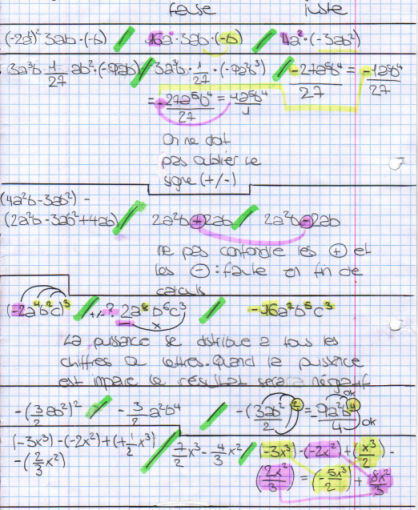 fausse juste
(-2a)² · 3ab · (-b) / 16a² · 3ab · (-b) / 4a² · (-3ab²)
3a³b · 1/27 ab² · (-9ab) / 3a³b · 1/27 · (-9a²b³) / -27a⁵b⁴/27 = -1a⁵b⁴/27
= -27a⁵b⁴/27 = 4a⁵b⁴/1
On ne doit
pas oublier le
signe (+/-)
(4a²b - 3ab²) -
(2a²b - 3ab² + 4ab) / 2a²b + 2ab / 2a²b - 2ab
ne pas confondre les + et
les - : faute en fin de
calculs
(-2a²b c)³ / +/- ? 2a⁶b⁵c³ / -16a²b⁵c³
La puissance se distribue à tous les
chiffres ou lettres. Quand la puissance
est impaire le résultat sera négatif
-(3/2 ab²)² / -3/2 a²b⁴ / -(3ab²/2)² = 9a²b⁴/4 ok
(-3x³) - (-2x²) + (+1/2 x³) / 7/2 x³ - 4/3 x² / (-3x³) - (-2x²) + (x³/2) -
-(2/3 x²) (2x²/3) = (-5x³/2) + 8x²/3